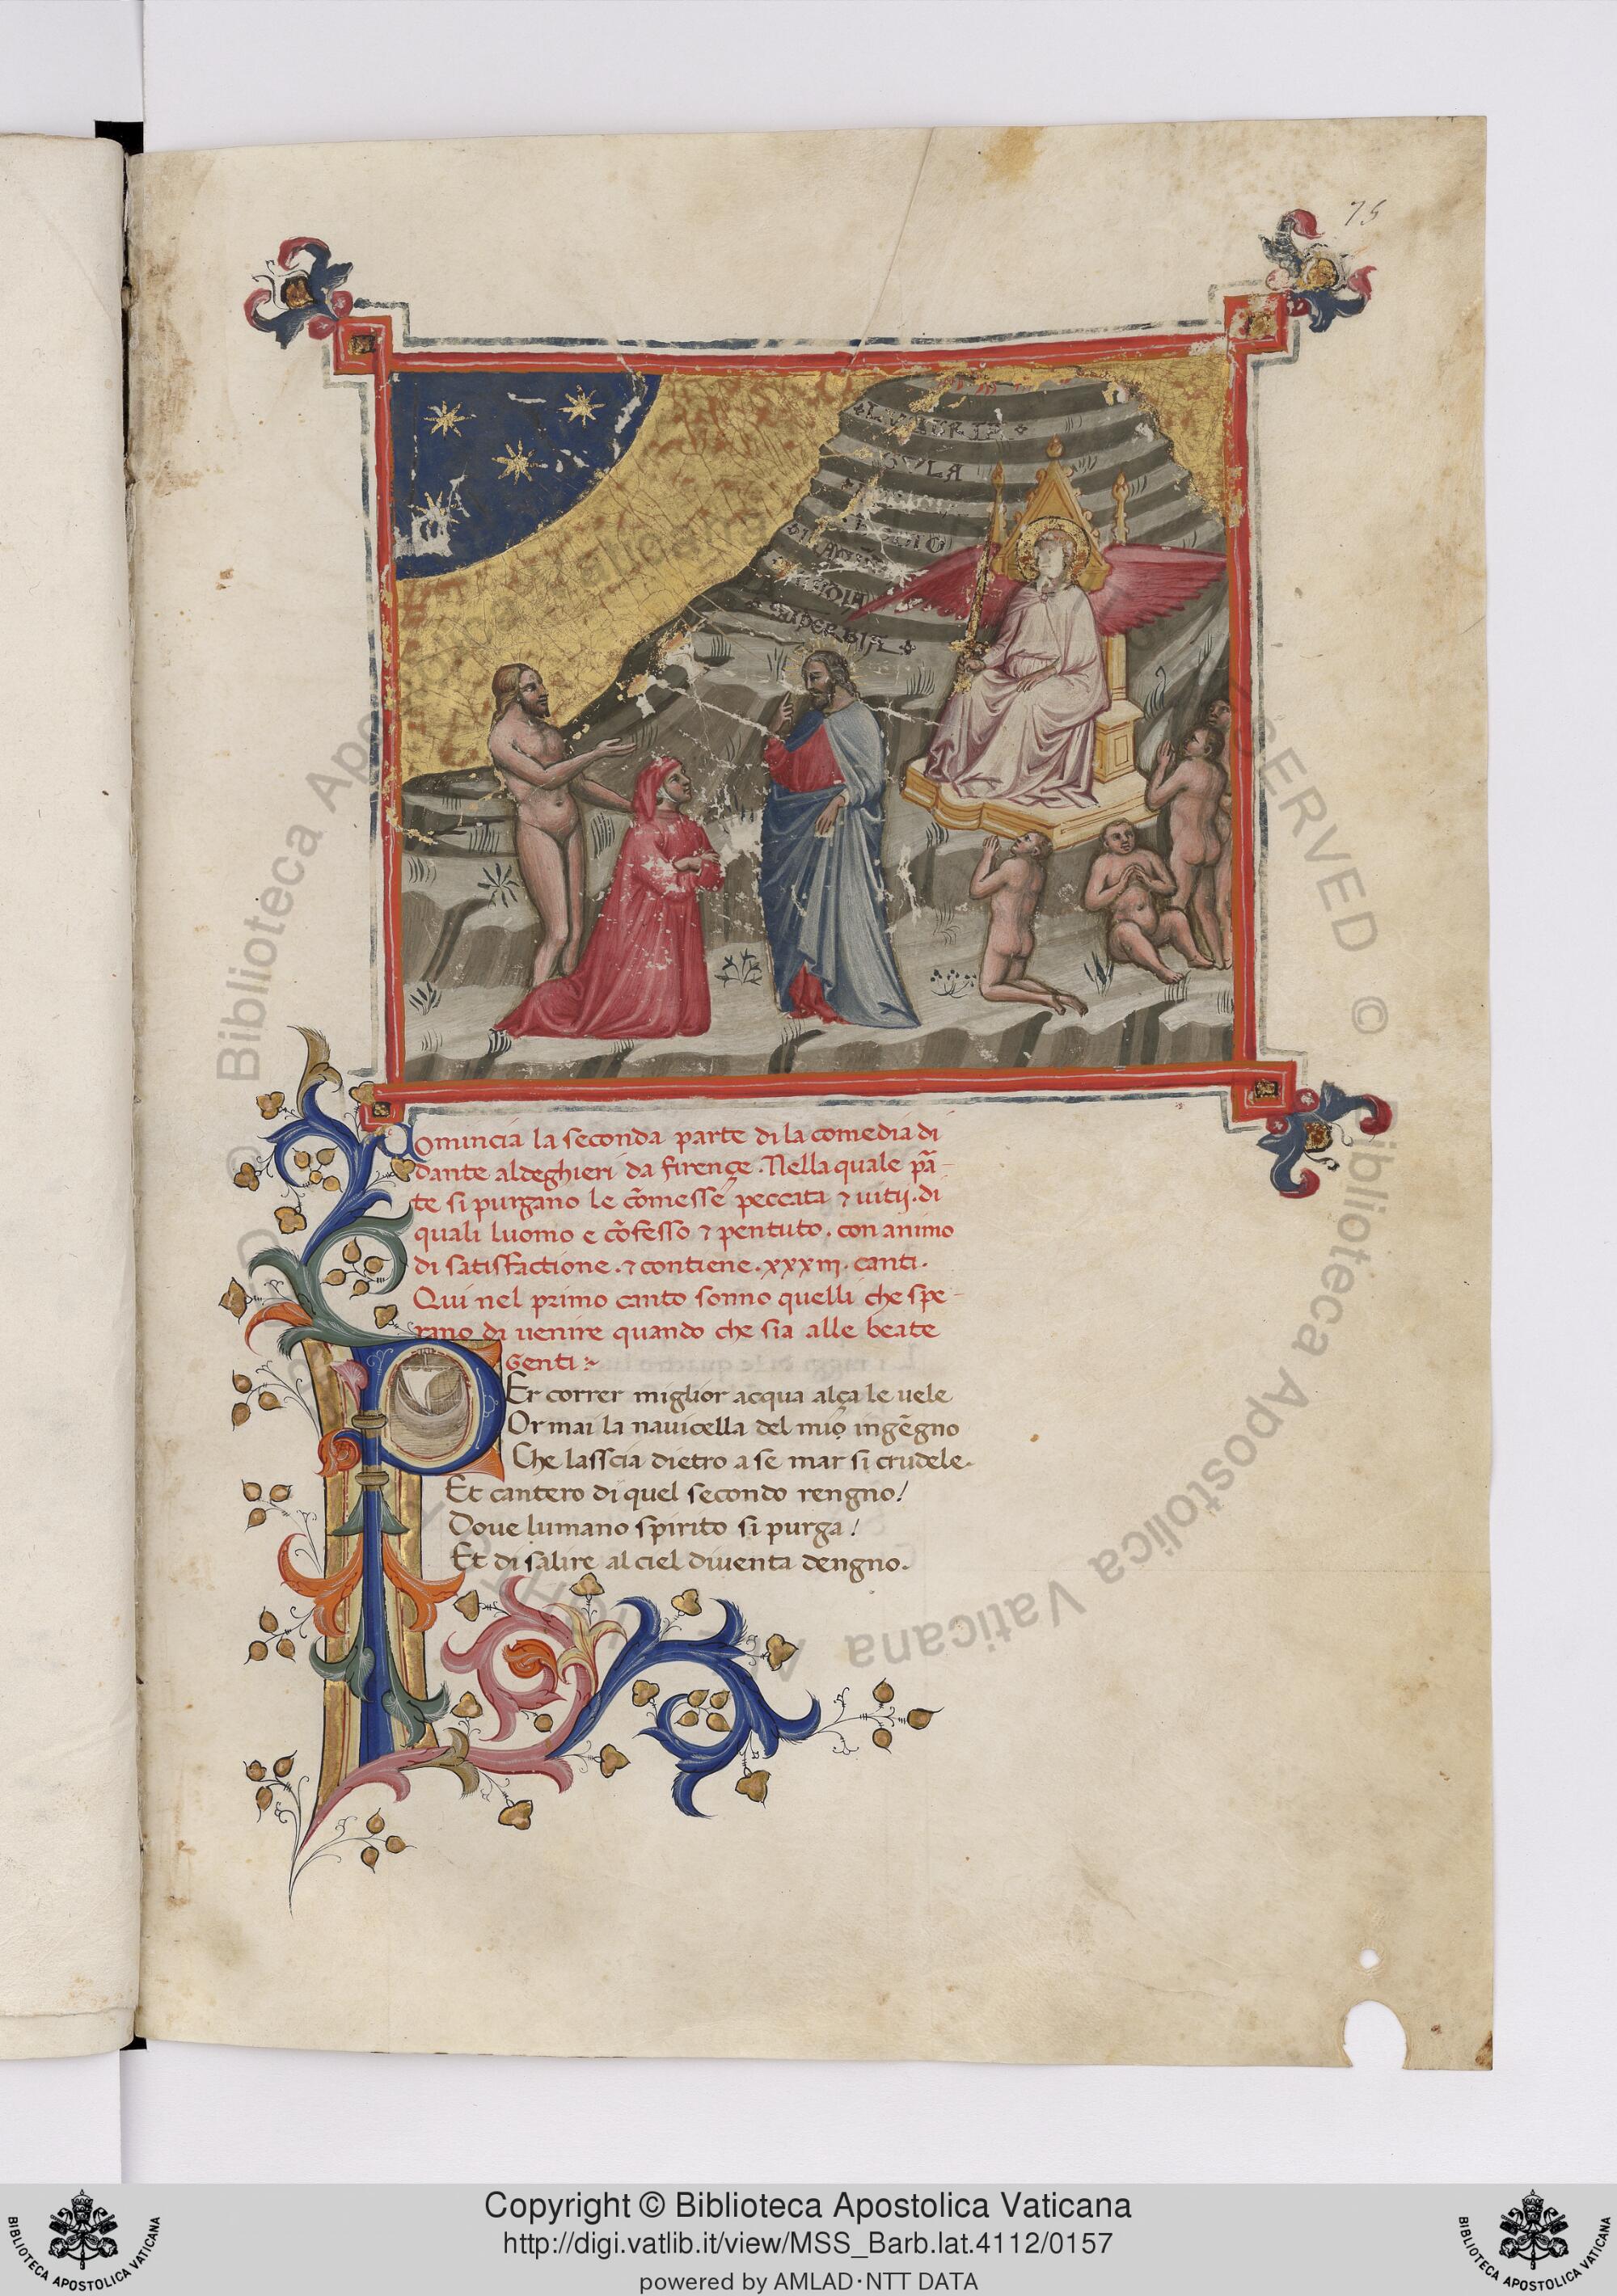 75
GOLA
SUPERBIA
Comincia la seconda parte di la comedia di
dante aldeghieri da firençe . Nella quale p̄a-
te si purgano le cōmesse peccata ⁊ uitij . di
quali luomo e cōfesso ⁊ pentuto . con animo
di satisfactione . ⁊ contiene . xxxiii . canti .
Qui nel primo canto sonno quelli che spe-
rano di uenire quando che sia alle beate
Genti :~
PEr correr miglior acqua alça le uele
Ormai la nauicella del mio ingēgno
Che lasscia dietro a se mar si crudele.
Et cantero di quel secondo rengno /
Doue lumano spirito si purga /
Et di salire al ciel diuenta dengno.
© Biblioteca Apostolica Vaticana
Copyright © Biblioteca Apostolica Vaticana
http://digi.vatlib.it/view/MSS_Barb.lat.4112/0157
powered by AMLAD·NTT DATA
BIBLIOTECA APOSTOLICA VATICANA
BIBLIOTECA APOSTOLICA VATICANA